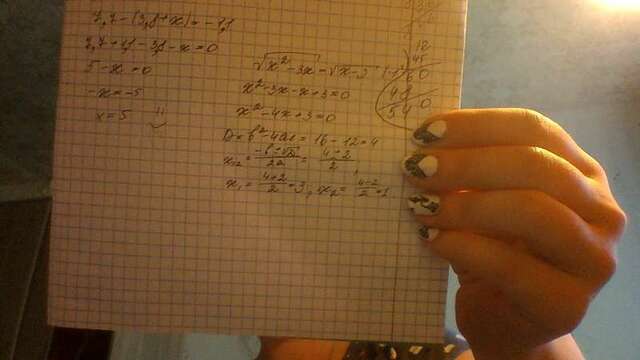 7,7-(3,8+x)=-1,1
7,7+1,1-3,8-x=0
5-x=0
-x=-5
x=5
√x²-3x=√x-3
x²-3x-x+3=0
x²-4x+3=0
D=b²-4ac=16-12=4
x₁,₂=(-b±√D)/2a=(4±2)/2
x₁=(4+2)/2=3, x₂=(4-2)/2=1
12
45
60
48
540